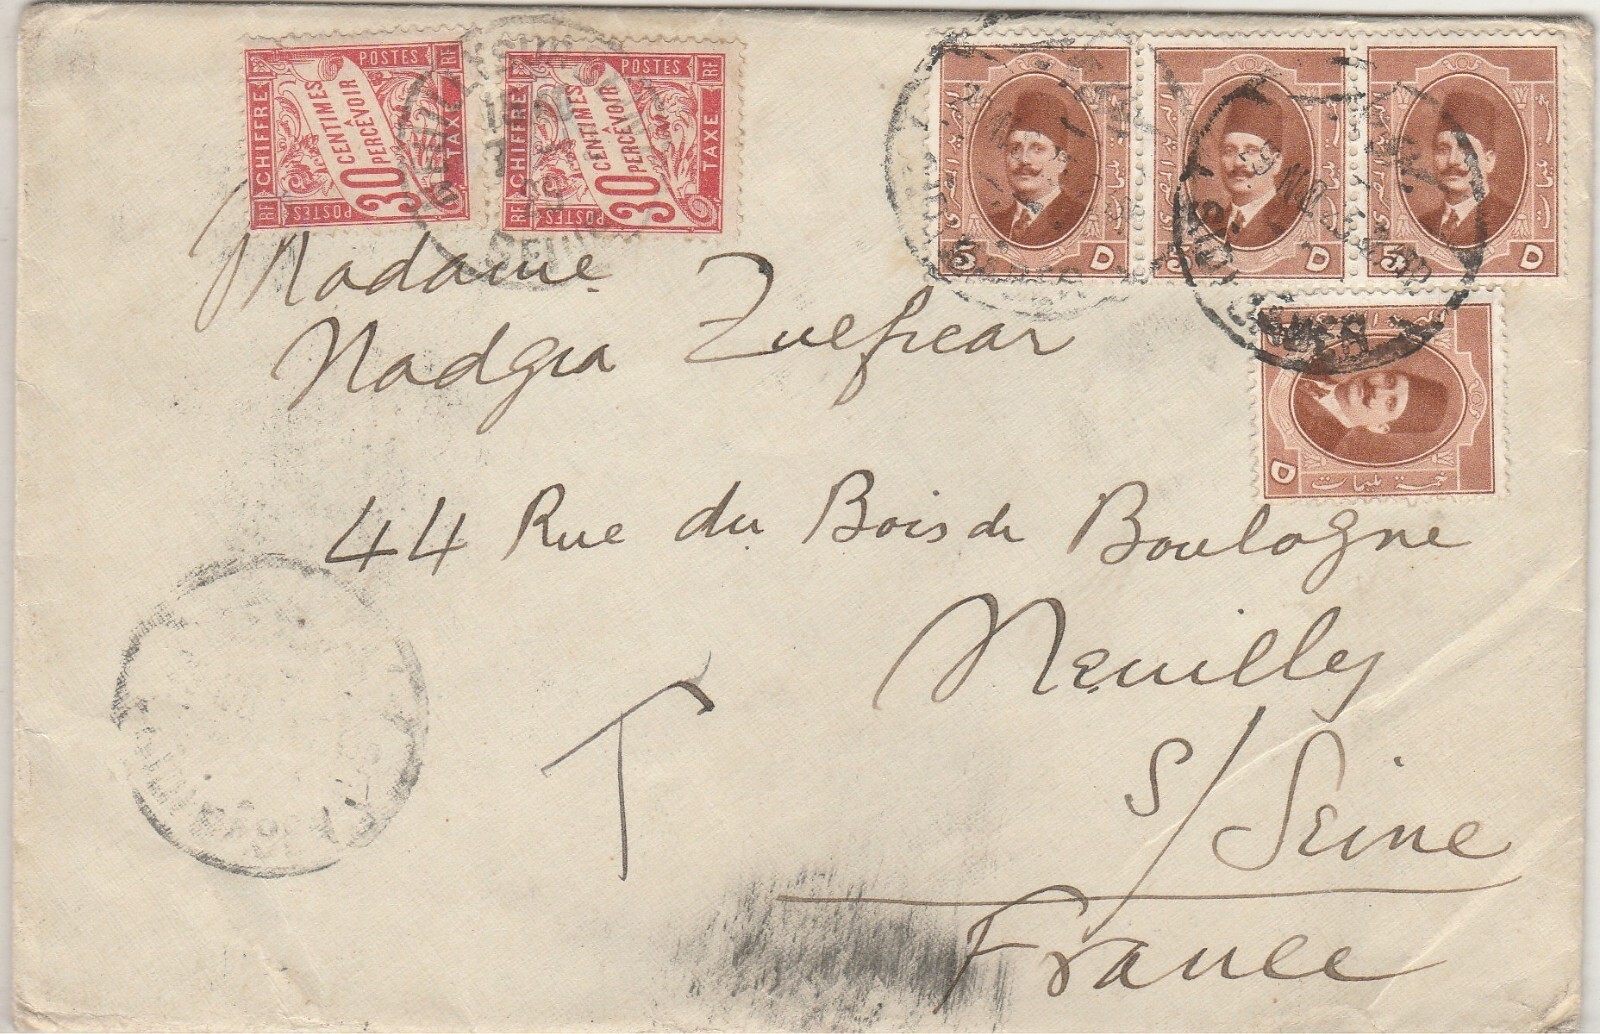 CHIFFRE POSTES RF
30 CENTIMES
A
PERCEVOIR
RF POSTES TAXE
CHIFFRE POSTES RF
30 CENTIMES
A
PERCEVOIR
RF POSTES TAXE
5 D
5 D
5 D
D
خمسة مليمات
Madame
Nadgia Zulficar
44 Rue du Bois de Boulogne
Neuilly
S/Seine
France
T